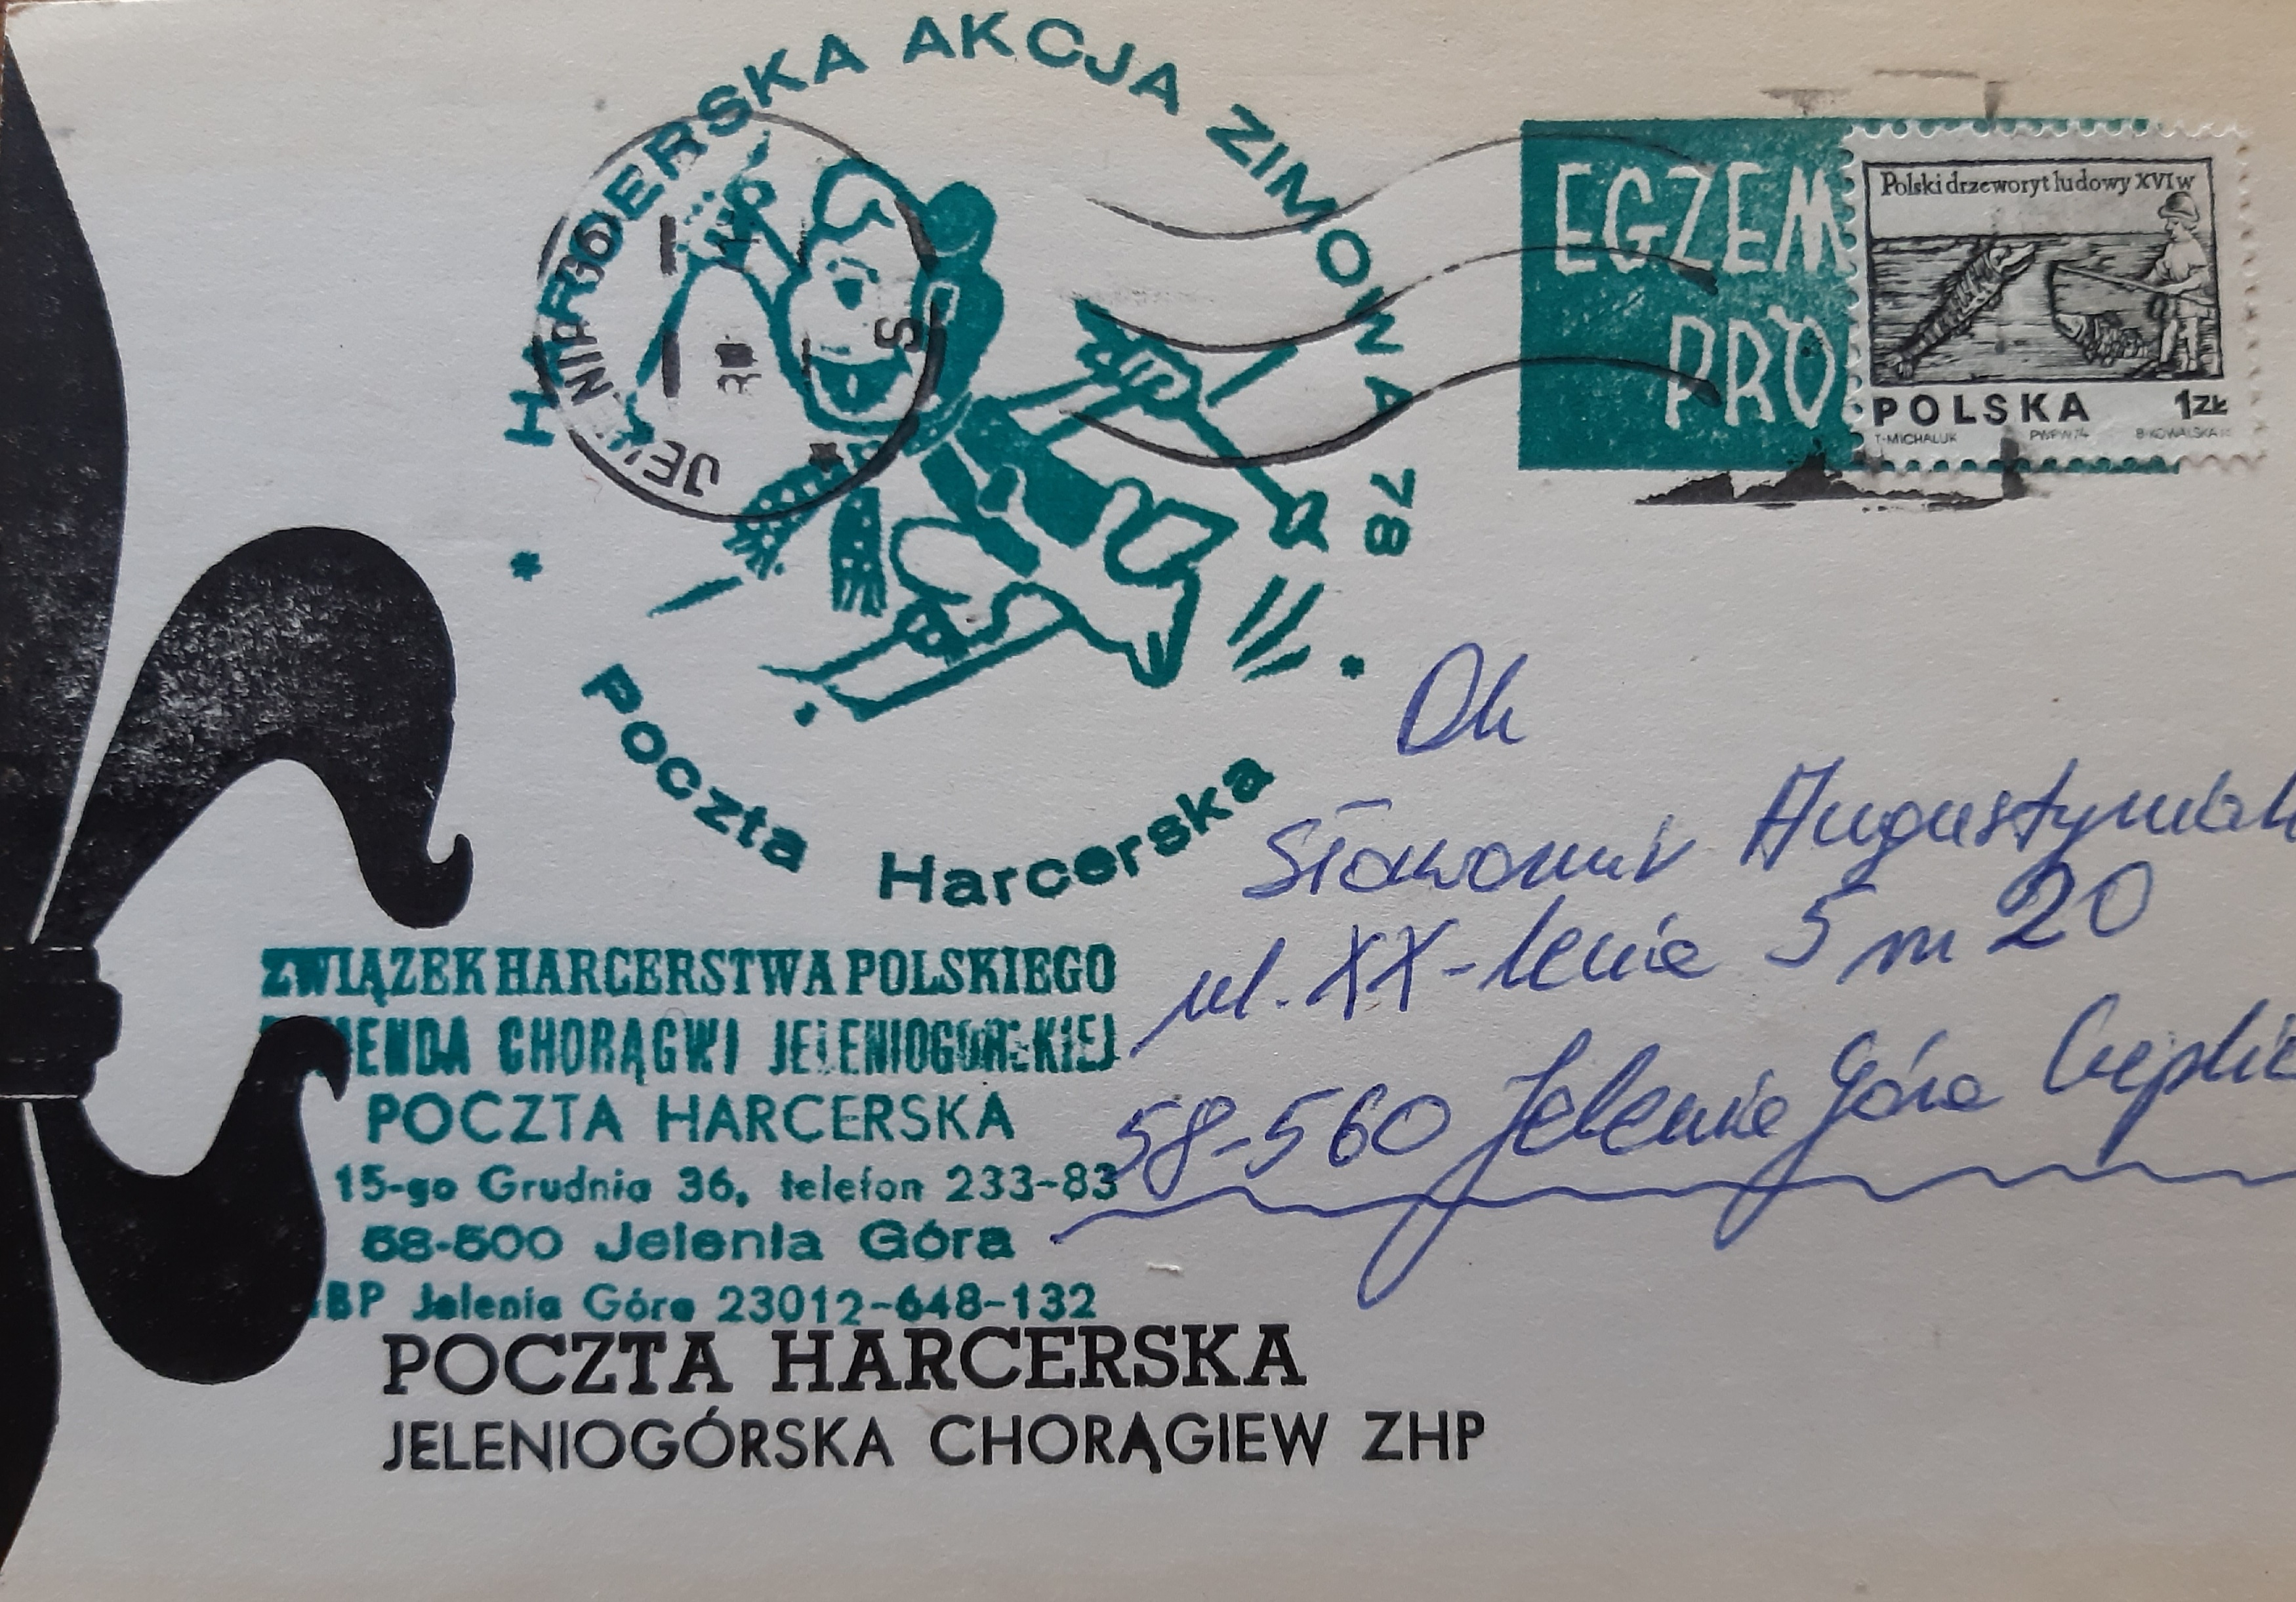 HARCERSKA AKCJA ZIMOWA 78
Poczta Harcerska
EGZEM
PRO
Polski drzeworyt ludowy XVI w
POLSKA 1ZŁ
T·MICHALUK PWPW 74 B·KOWALSKA
Dh
Sławomir Augustyniak
ul. XX-lecia 5 m 20
58-560 Jelenia Góra Cieplic
ZWIĄZEK HARCERSTWA POLSKIEGO
MENDA CHORĄGWI JELENIOGÓRSKIEJ
POCZTA HARCERSKA
15-go Grudnia 36, telefon 233-83
58-500 Jelenia Góra
BP Jelenia Góra 23012-648-132
POCZTA HARCERSKA
JELENIOGÓRSKA CHORĄGIEW ZHP